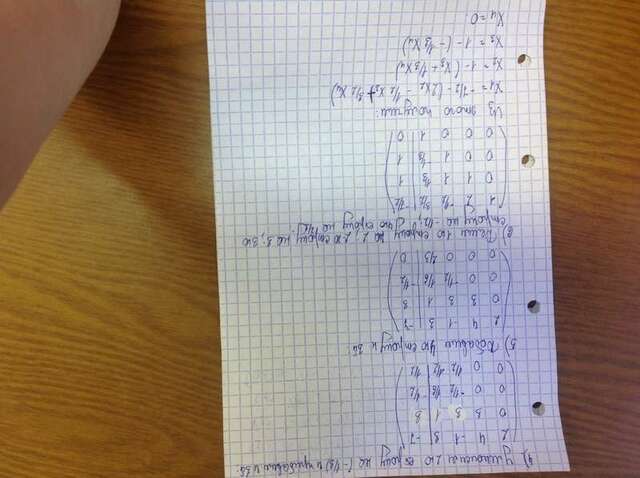 4) умножим 2ю строку на (-1/3) и прибавим к 3й.
2 4 -1 3 | -7
0 3 3 1 | 3
0 0 -1/2 1/6 | -1/2
0 0 1/2 1/2 | 1/2
5) Добавим 4ю строку к 3й.
2 4 -1 3 | -7
0 3 3 1 | 3
0 0 -1/2 1/6 | -1/2
0 0 0 2/3 | 0
6) Делим 1ю строку на 2, 2ю строку на 3, 3ю
строку на -1/2, 4ю строку на 2/3
1 2 -1/2 3/2 | -7/2
0 1 1 1/3 | 1
0 0 1 -1/3 | 1
0 0 0 1 | 0
Из этого получим:
x1 = -7/2 - (2x2 - 1/2 x3 + 3/2 x4)
x2 = 1 - (x3 + 1/3 x4)
x3 = 1 - (-1/3 x4)
x4 = 0.